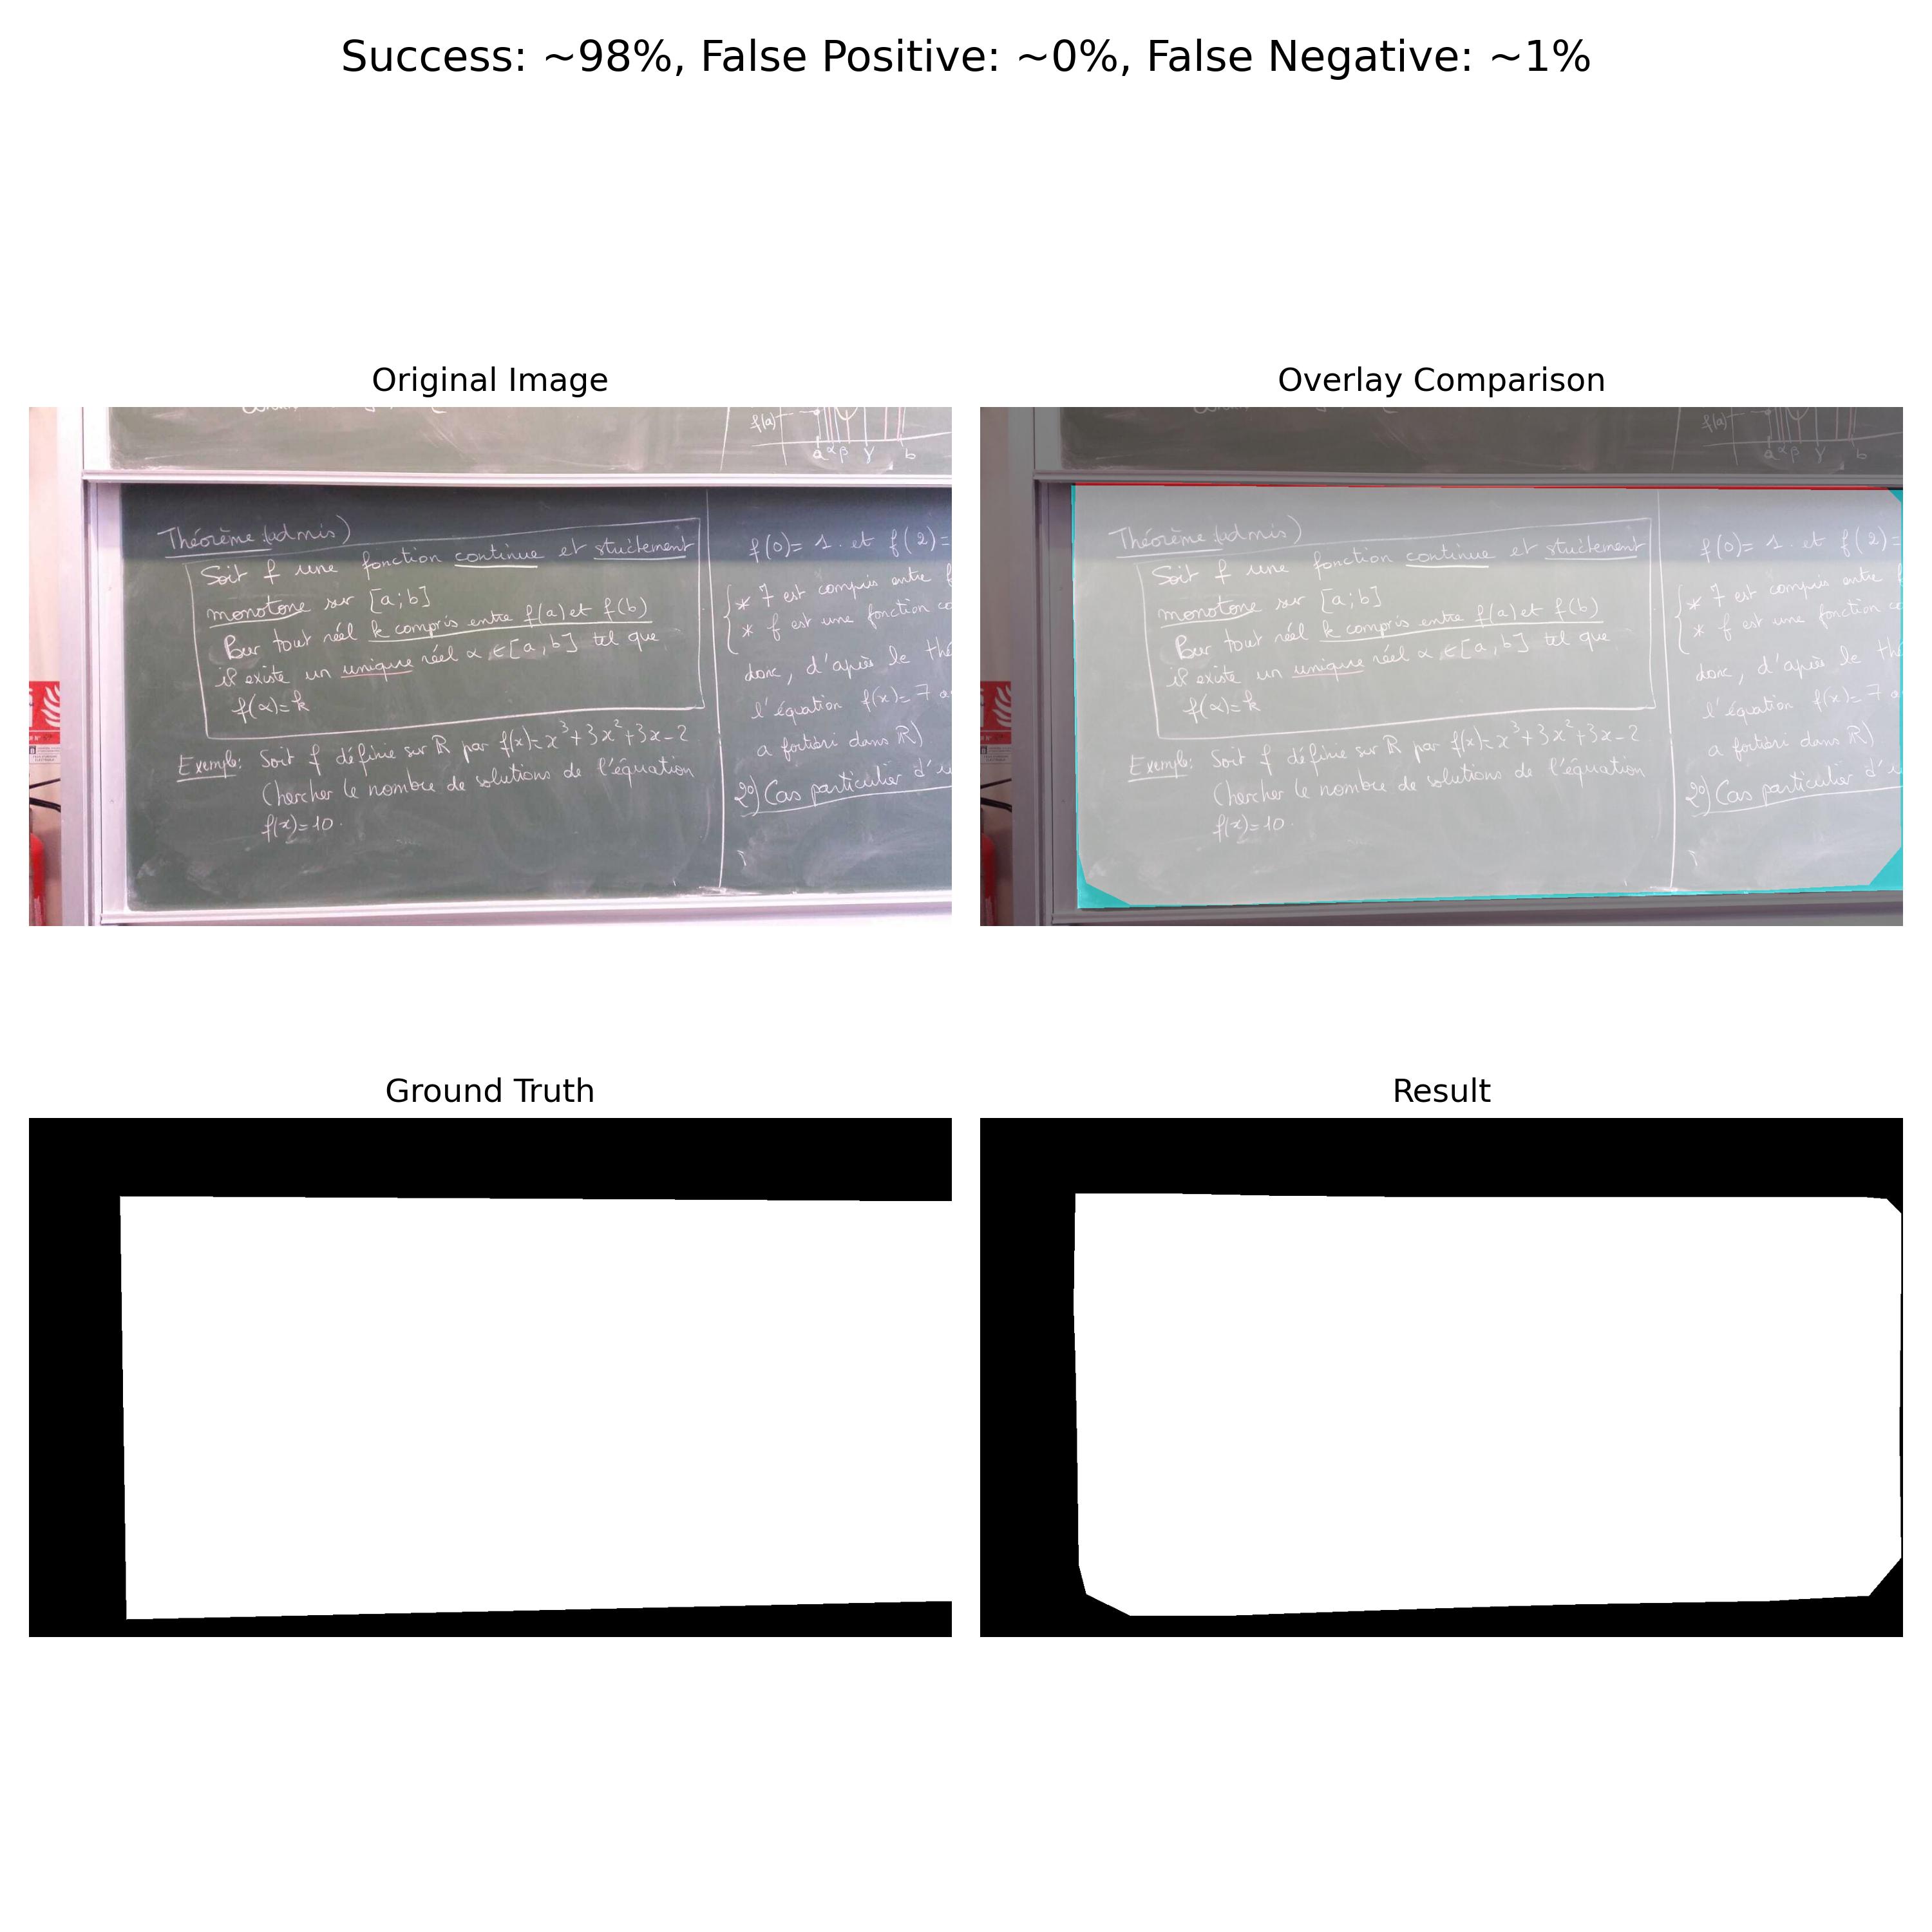 Success: ~98%, False Positive: ~0%, False Negative: ~1%
Original Image
f(a)
a α β γ b
Théorème (admis)
Soit f une fonction continue et strictement
monotone sur [a;b]
Pour tout réel k compris entre f(a) et f(b)
il existe un unique réel α ∈ [a,b] tel que
f(α)=k
Exemple: Soit f définie sur ℝ par f(x)=x³+3x²+3x-2
Chercher le nombre de solutions de l'équation
f(x)=10.
f(0)=1. et f(2)=
* 7 est compris entre
* f est une fonction co
donc, d'après le th
l'équation f(x)=7 a
a fortiori dans ℝ)
2°) Cas particulier d'u
Overlay Comparison
f(a)
a α β γ b
Théorème (admis)
Soit f une fonction continue et strictement
monotone sur [a;b]
Pour tout réel k compris entre f(a) et f(b)
il existe un unique réel α ∈ [a,b] tel que
f(α)=k
Exemple: Soit f définie sur ℝ par f(x)=x³+3x²+3x-2
Chercher le nombre de solutions de l'équation
f(x)=10.
f(0)=1. et f(2)=
* 7 est compris entre
* f est une fonction co
donc, d'après le th
l'équation f(x)=7 a
a fortiori dans ℝ)
2°) Cas particulier d'u
Ground Truth
Result